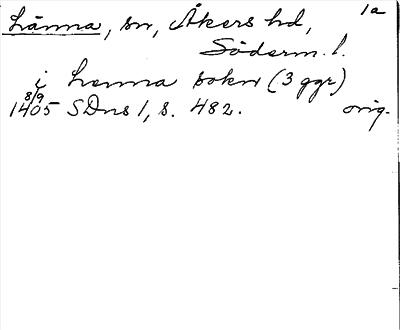 1a
Länna, sn, Åkers hd,
Söderm. l.
i henna sokn (3 ggr)
8/9
1405 SDns 1, s. 482. orig.